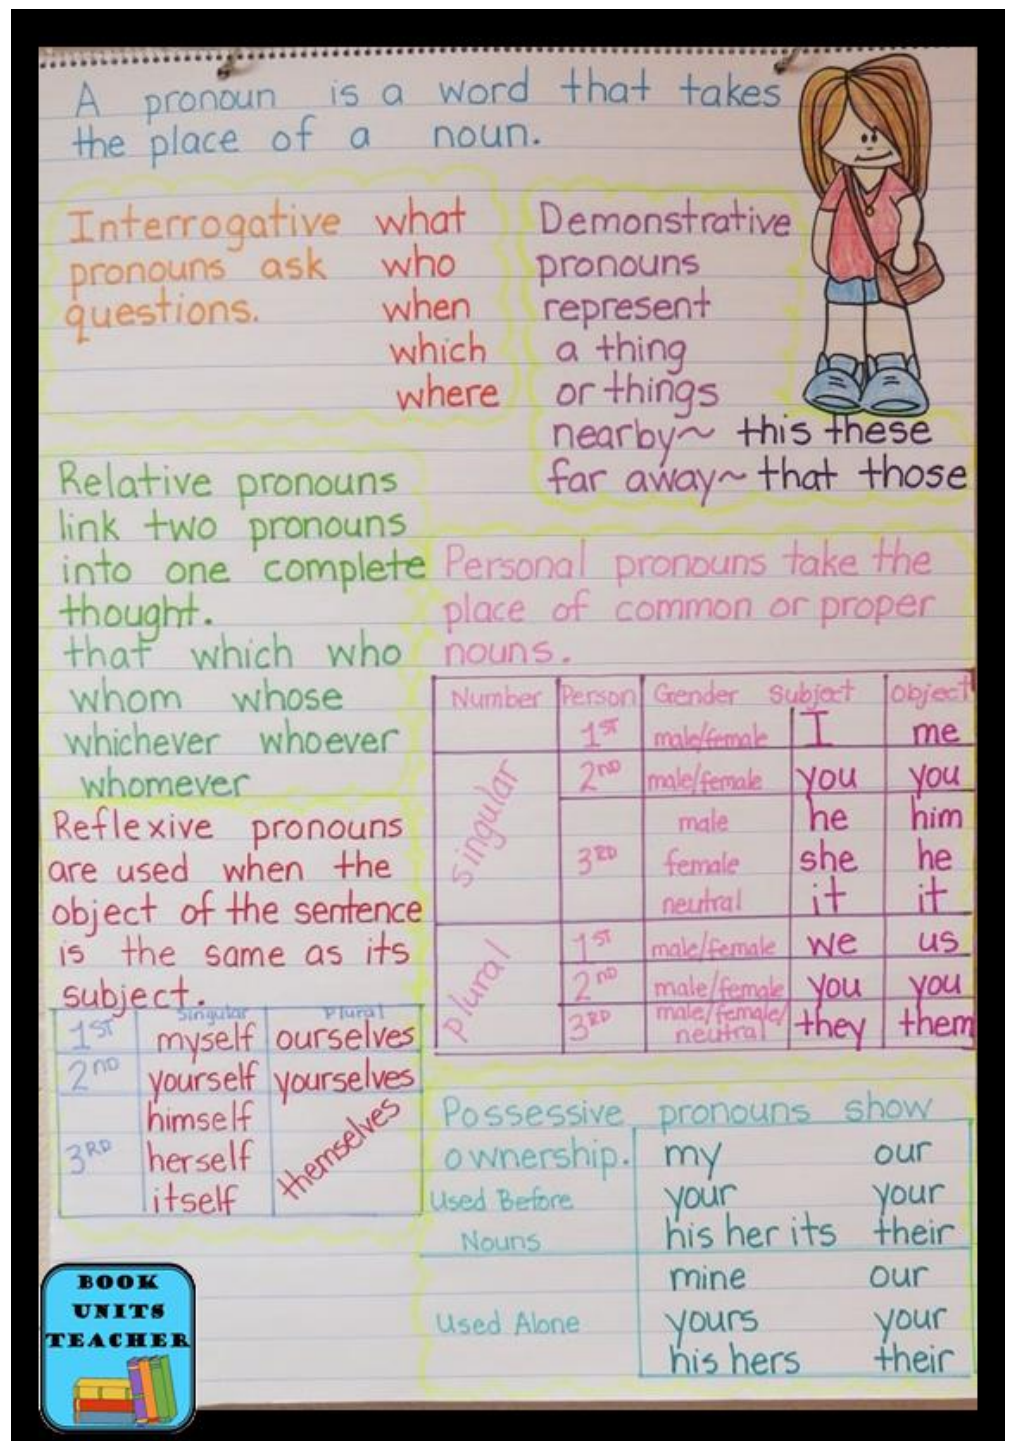 A pronoun is a word that takes
the place of a noun.
Interrogative what
pronouns ask who
questions. when
which
where
Demonstrative
pronouns
represent
a thing
or things
nearby~ this these
far away~ that those
Relative pronouns
link two pronouns
into one complete
thought.
that which who
whom whose
whichever whoever
whomever
Personal pronouns take the
place of common or proper
nouns.
Number Person Gender Subject Object
1ST male/female I me
singular
2nd male/female you you
male he him
3RD female she he
neutral it it
plural
1ST male/female we us
2nd male/female you you
3RD male/female/neutral they them
Reflexive pronouns
are used when the
object of the sentence
is the same as its
subject.
Singular Plural
1ST myself ourselves
2nd yourself yourselves
himself
3RD herself themselves
itself
Possessive pronouns show
ownership. my our
Used Before your your
Nouns his her its their
mine our
Used Alone yours your
his hers their
BOOK
UNITS
TEACHER